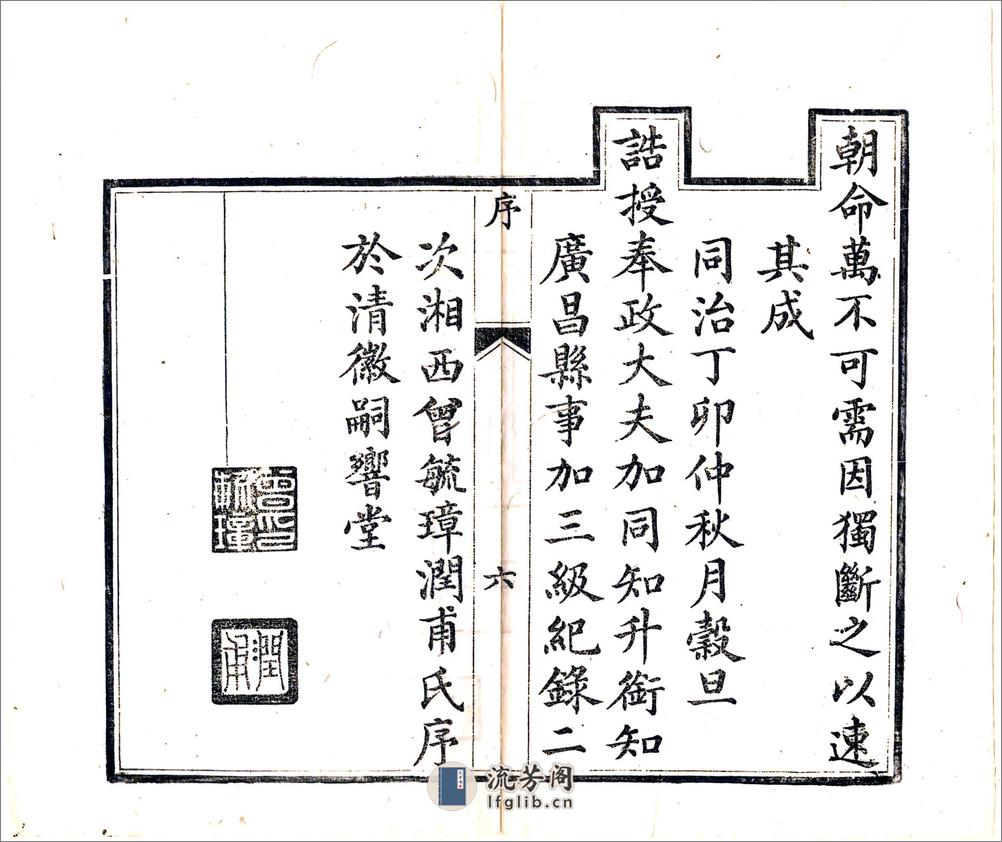 朝命萬不可需因獨斷之以速
其成
同治丁卯仲秋月穀旦
誥授奉政大夫加同知升銜知
廣昌縣事加三級紀錄二
序
六
次湘西曾毓璋潤甫氏序
於清徽嗣響堂
曾印毓璋
潤甫
流芳阁
lfglib.cn